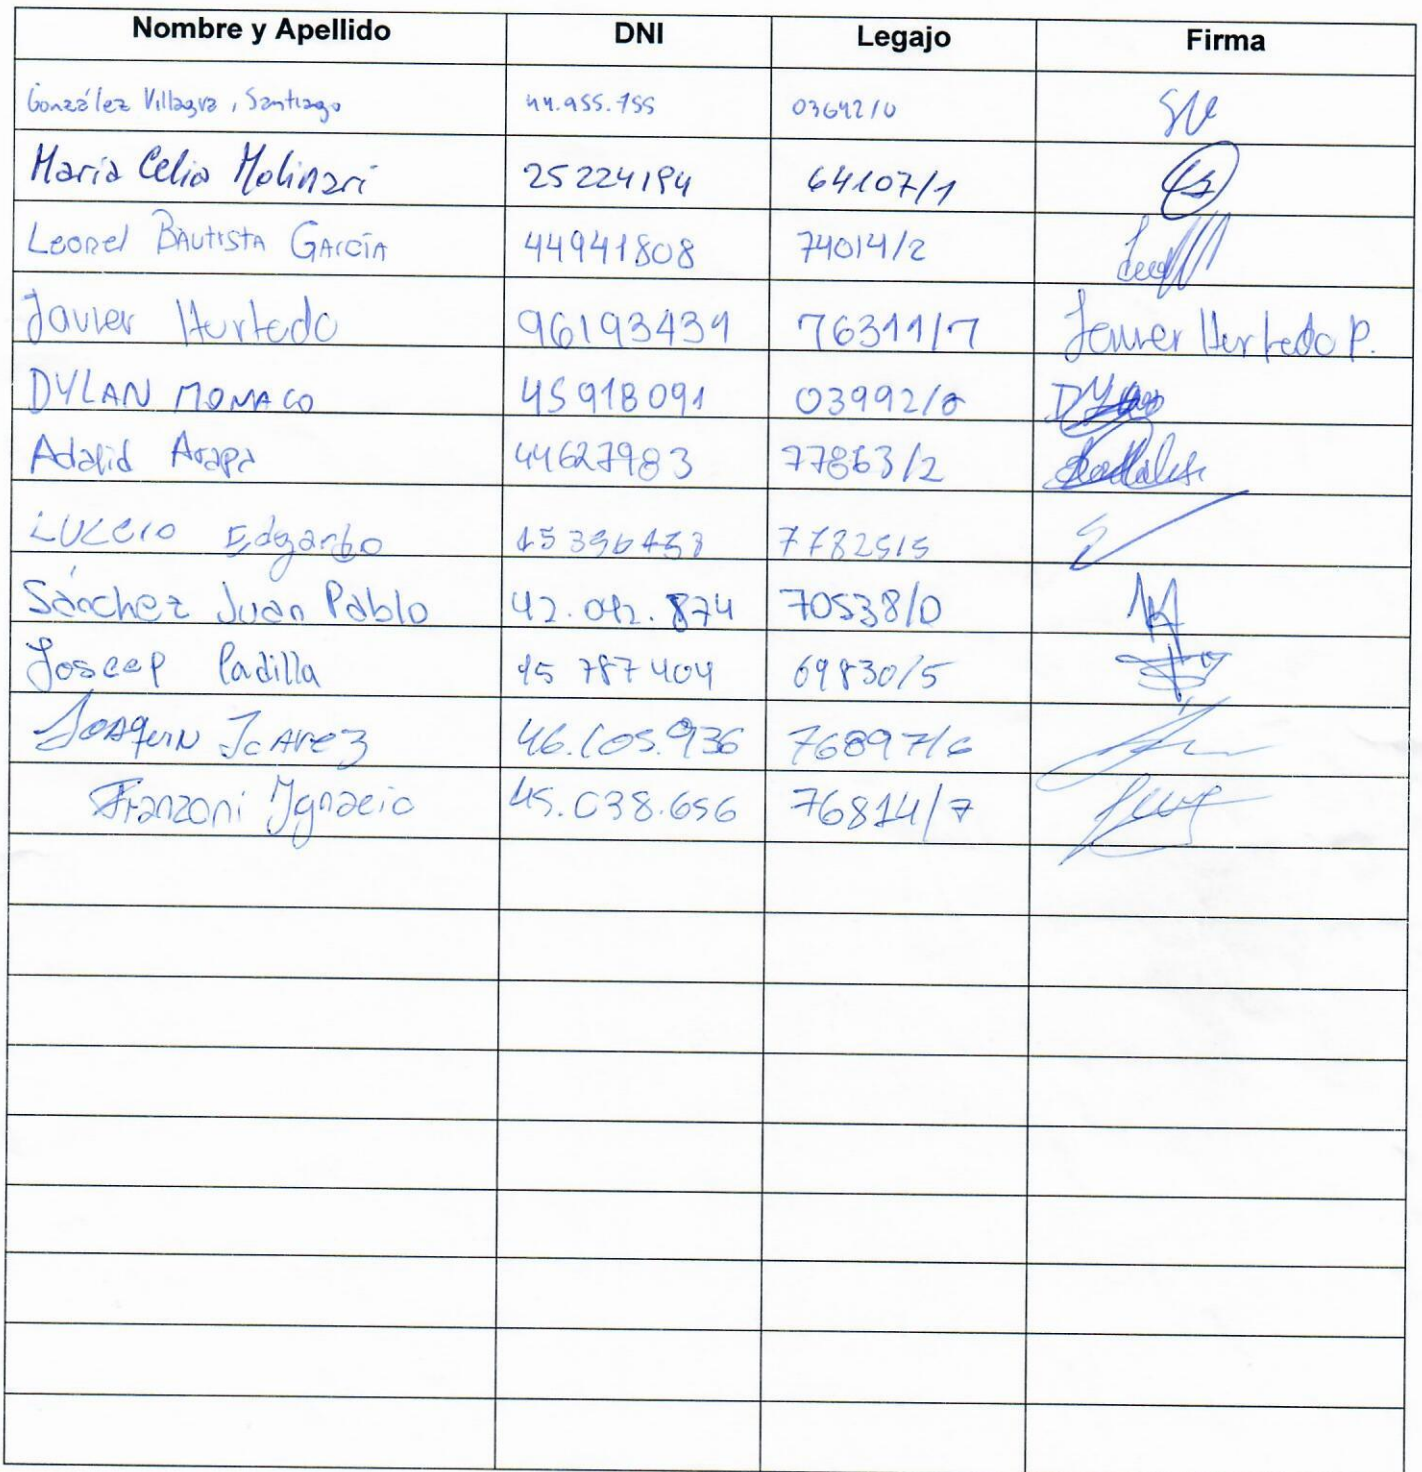 Nombre y Apellido DNI Legajo Firma
González Villagra, Santiago 44.955.755 03642/0 SV
María Celia Molinari 25224194 64107/1
Leonel BAUTISTA GARCÍA 44941808 74014/2
Javier Hurtado 96193431 76311/7 Javier Hurtado P.
DYLAN MONACO 45918091 03992/0
Adalid Arapa 44627983 77863/2
LUCEro Edgardo 77825/5
Sánchez Juan Pablo 42.042.874 70538/0
Joseep Padilla 45 787 404 69830/5
JOAquIN JuArez 46.105.936 76897/6
Franzoni Ignacio 45.038.656 76814/7